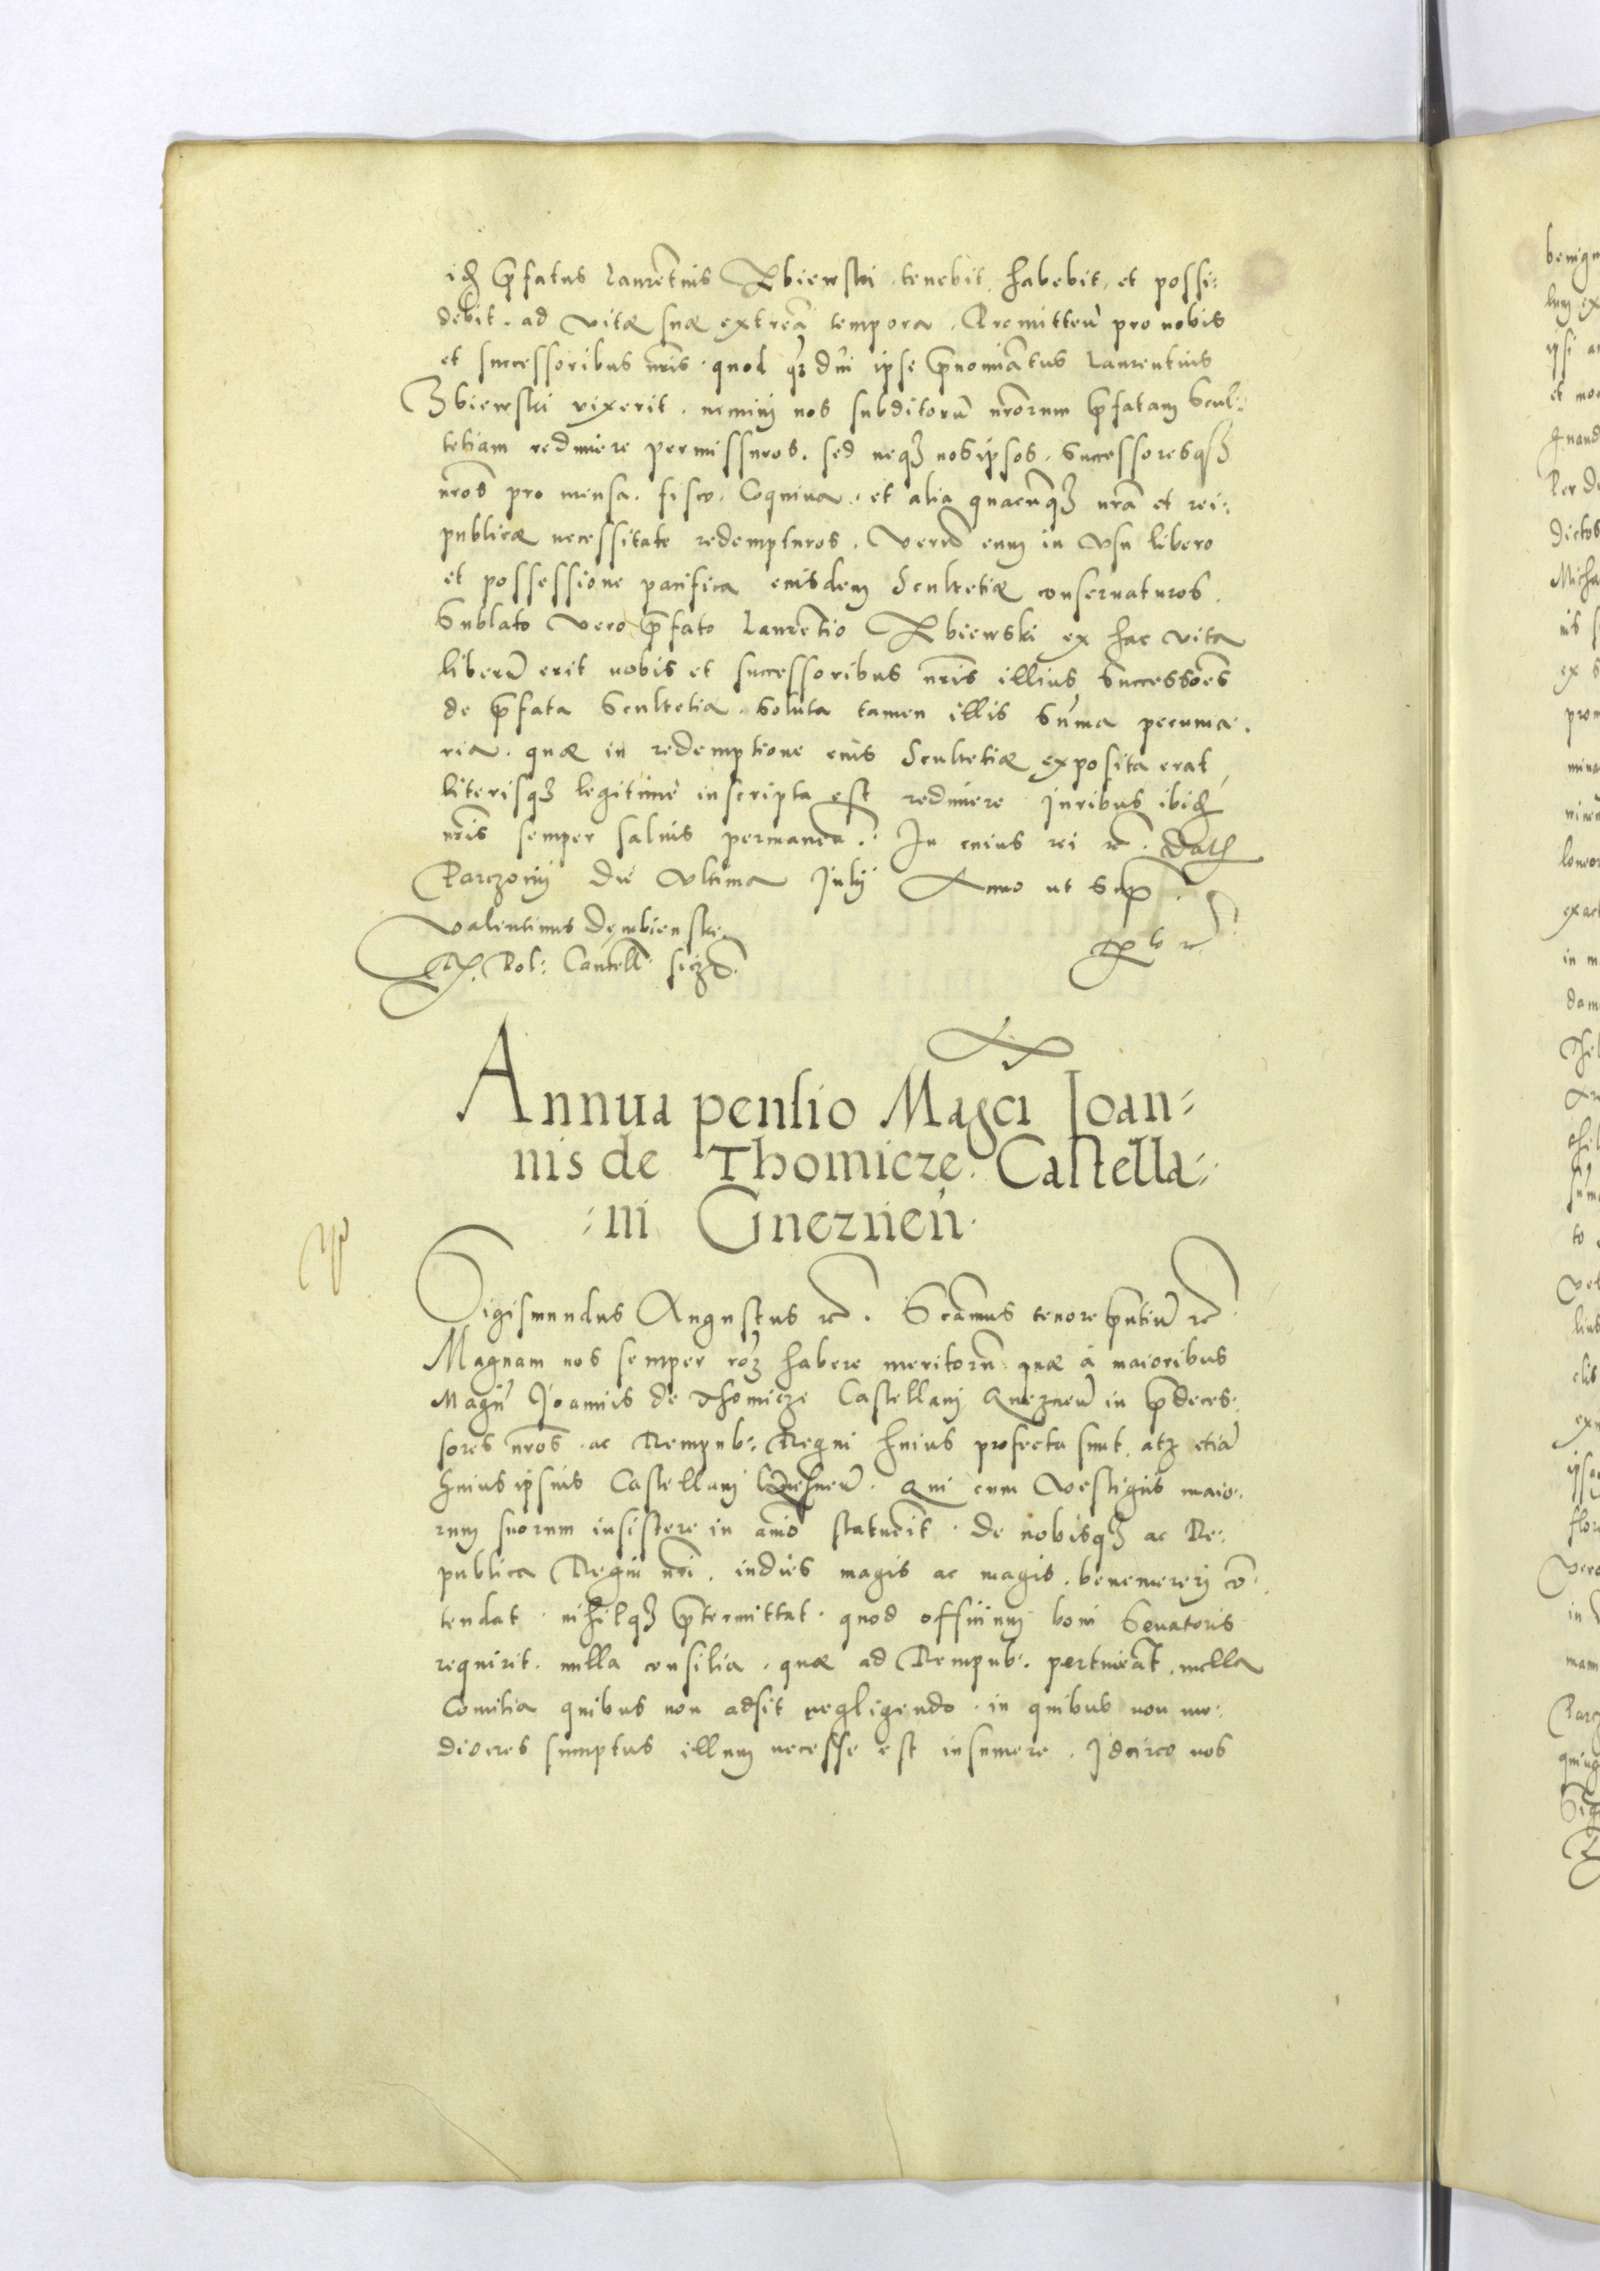 id p̄fatus Laurētius Zbiewski tenebit habebit et possi:
debit. ad vitæ suæ extreā tempora. Promitteñ pro nobis
et successoribus nr̄is. quod dū ipse p̄nomīatus Laurentius
Zbiewski vixerit. nemini nos subditorū nr̄orum p̄fatam Scul:
tetiam redimere permissuros. sed neqȝ nos ipsos. Successoresqȝ
nr̄os pro mensa. fisco. Coquina. et alia quacūqȝ nr̄a et rei:
publicæ necessitate redempturos. Verū eum in Vsu libero
et possessione pacifica eiusdem Scultetiæ conseruaturos.
Sublato vero p̄fato Laurētio Zbiewski ex hac vita
liberū erit nobis et successoribus nr̄is illius Successōes
de p̄fata Scultetia. Soluta tamen illis Sum̄a pecunia:
ria. quæ in redemptione eius Scultetiæ exposita erat
literisqȝ legitime inscripta est redimere Juribus ibid
nr̄is semper saluis permanen̄. In cuius rei &c. Dat
Parczouij Die Vltima Julij Anno ut Sup̄.
Valentinus Dembienski
R. Pol: Cancell
Annua pensio Magci Joan:
nis de Thomicze. Castella:
:ni Gneznen̄.
Sigismundus Augustus &c. S tenore p̄ntiū &c
Magnam nos semper rōȝ habere meritorū quæ à maioribus
Magn̄ Joannis de Thomicze Castellani Gneznen̄ in p̄deces:
sores nr̄os. ac Rempub: Regni huius profecta sunt. atȝ etiā
huius ipsius Castellani Gnesnen̄. Qui cum Vestigiis maio:
rum suorum insistere in aīo statuerit. de nobisqȝ ac Re:
publica Regni nr̄i. indies magis ac magis. benemererj cō:
tendat. nihilqȝ p̄termittat. quod officium boni Senatoris
requirit. nulla consilia. quæ ad Rempub: pertineāt. nulla
Comitia quibus non adsit negligendo. in quibus non me:
diocres sumptus illum necesse est insumere. Idcirco nos